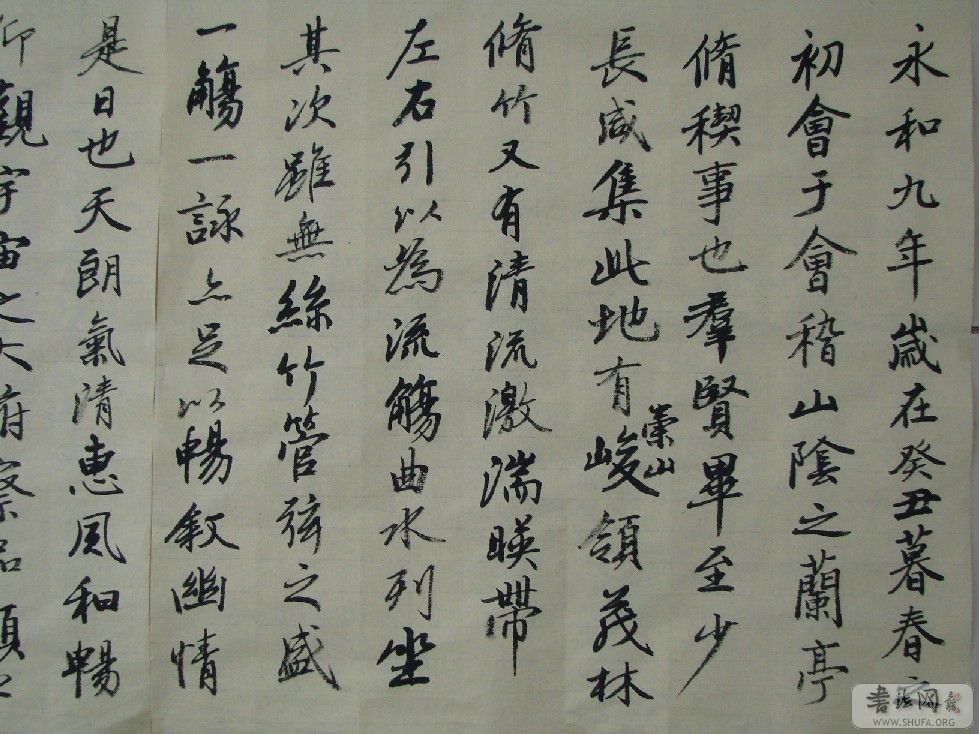 永和九年歲在癸丑暮春之
初會于會稽山陰之蘭亭
脩稧事也羣賢畢至少
長咸集此地有
崇山
峻領茂林
脩竹又有清流激湍暎帶
左右引以為流觴曲水列坐
其次雖無絲竹管弦之盛
一觴一詠亦足以暢敘幽情
是日也天朗氣清惠風和暢
仰觀宇宙之大府察品類之
書法网
WWW.SHUFA.ORG